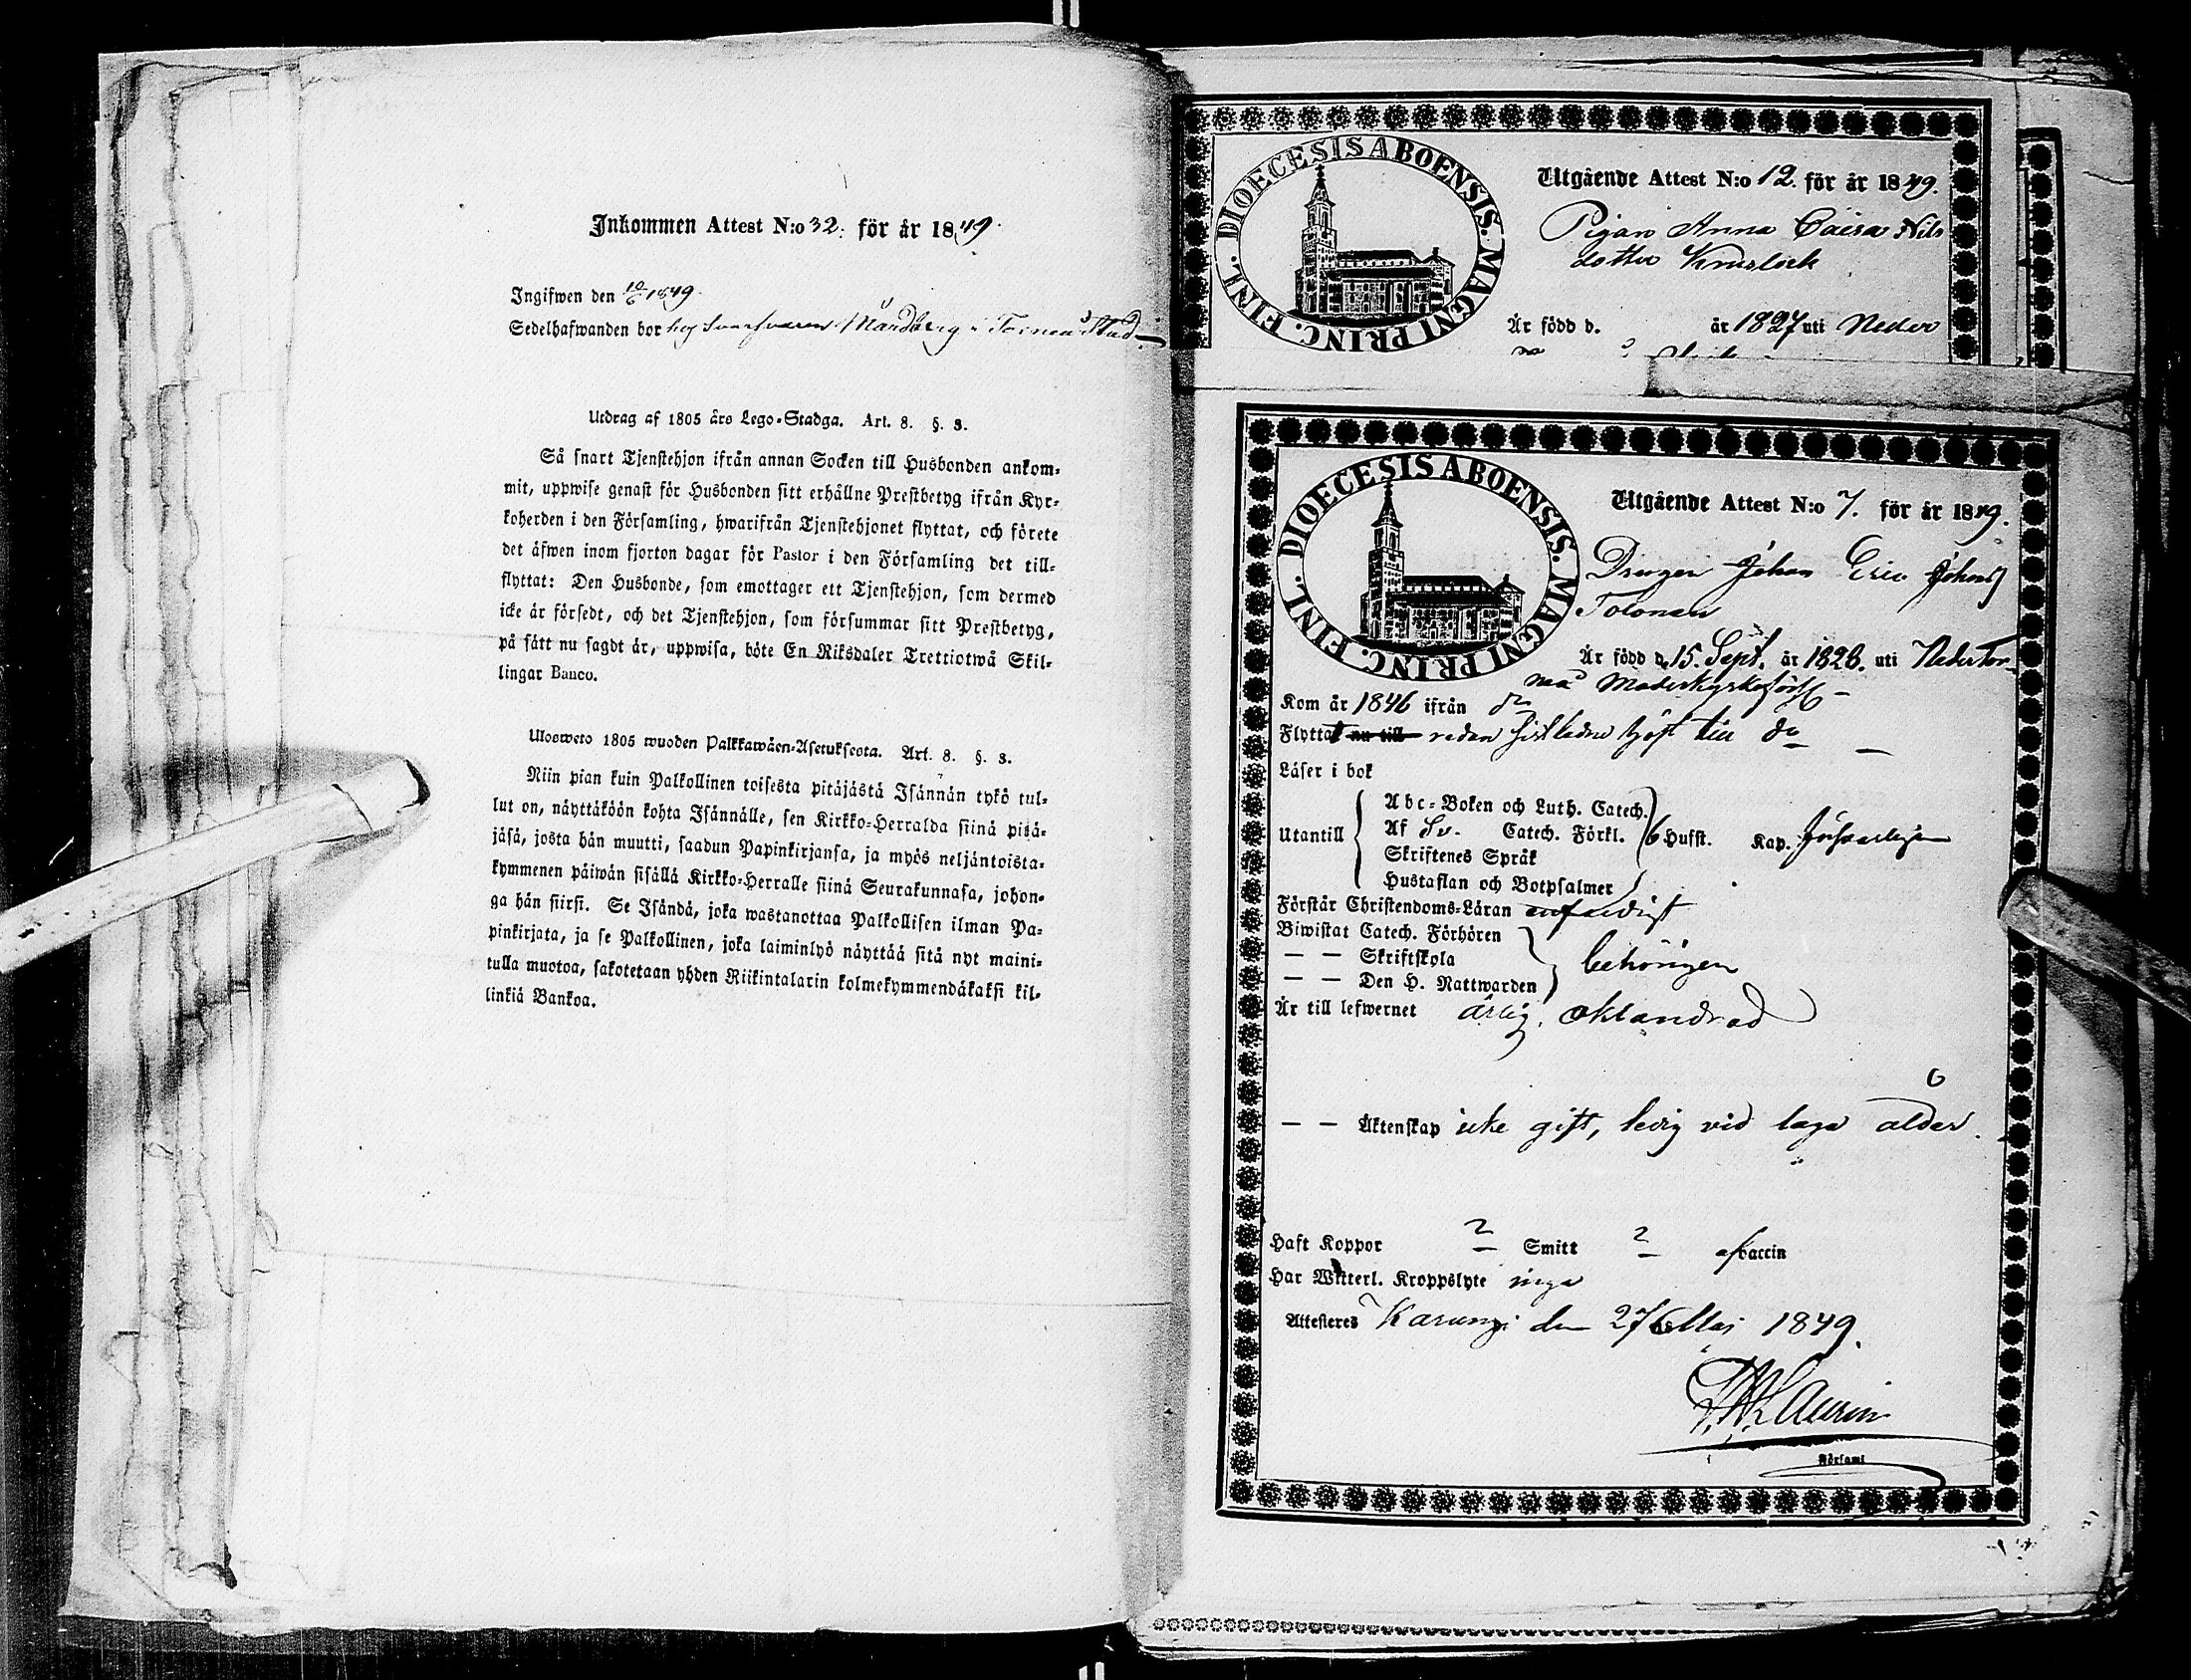 Inkommen Attest N:o 32. för år 1849.
Ingifwen den 10/6 1849.
Sedelhafwanden bor hos Mårdberg i Torneå Stad
Utdrag af 1805 års Lego-Stadga. Art. 8. §. 3.
Så snart Tjenstehjon ifrån annan Socken till Husbonden ankom-
mit, uppwise genast för Husbonden sitt erhållne Prestbetyg ifrån Kyr-
koherden i den Församling, hwarifrån Tjenstehjonet flyttat, och förete
det äfwen inom fjorton dagar för Pastor i den Församling det till-
flyttat: Den Husbonde, som emottager ett Tjenstehjon, som dermed
icke är försedt, och det Tjenstehjon, som försummar sitt Prestbetyg,
på sätt nu sagdt är, uppwisa, böte En Riksdaler Trettiotwå Skil-
lingar Banco.
Ulosweto 1805 wuoden Palkkawäen-Asetuksesta. Art. 8. §. 3.
Niin pian kuin Palkollinen toisesta pitäjästä Isännän tykö tul-
lut on, näyttäköön kohta Isännälle, sen Kirkko-Herralda siinä pitä-
jäsä, josta hän muutti, saadun Papinkirjansa, ja myös neljäntoista-
kymmenen päiwän sisällä Kirkko-Herralle siinä Seurakunnasa, johon-
ga hän siirsi. Se Isändä, joka wastanottaa Palkollisen ilman Pa-
pinkirjata, ja se Palkollinen, joka laiminlyö näyttää sitä nyt maini-
tulla muotoa, sakotetaan yhden Riikintalarin kolmekymmendäkaksi kil-
linkiä Bankoa.
DIOECESIS ABOENSIS. MAGNI PRINC. FINL.
Utgående Attest N:o 12. för år 1849.
Pigan Anna Caisa Nils
dotter
Är född d. år 1827 uti Neder
DIOECESIS ABOENSIS. MAGNI PRINC. FINL.
Utgående Attest N:o 7. för år 1849.
Drengen Johan Eric Johans
Tolonen
Är född d. 15. Sept. år 1828. uti NederTor-
neå Moderkyrkoförs
Kom år 1846 ifrån do
Flyttat nu till redan sistledne höst till do
Läser i bok
Utantill
Abc-Boken och Luth. Catech.
Af Sv. Catech. Förkl. 6 Hufst. Kap. försvarligen
Skriftenes Språk
Hustaflan och Botpsalmer
Förstår Christendoms-Läran enfaldigt
Biwistat Catech. Förhören
— — Skriftskola behörigen
— — Den H. Nattwarden
Är till lefwernet ärlig, oklandrad
— — Äktenskap icke gift, ledig vid laga ålder.
Haft Koppor ? Smitt ? af vaccin
Har Witterl. Kroppslyte inga
Attesteres Karungi den 27 Maj 1849.
Församl